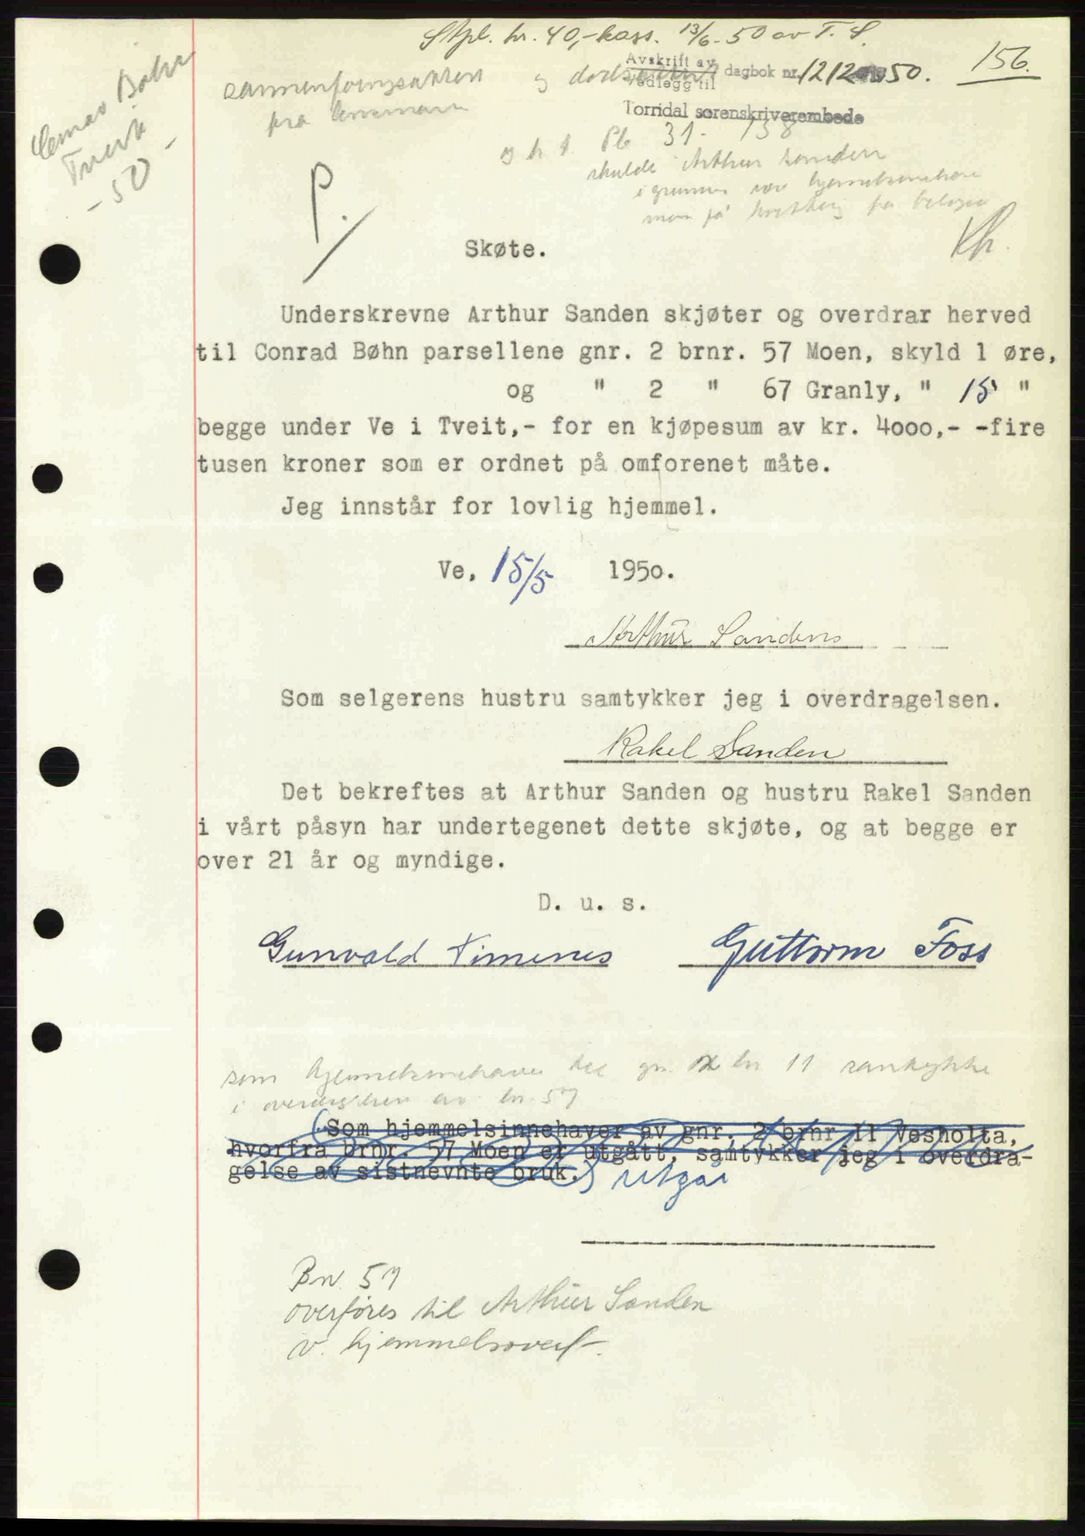 Stpl. kr. 40,- kass. 13/6-50 av T. S.
156.
Avskrift av
Vedlegg til dagbok nr. 1212 1950.
Torridal sorenskriverembede
Conrad Bøhn
Tveit
- 50 -
fra
og
31 - 138
skulde Arthur Sanden
P.
Skøte.
Underskrevne Arthur Sanden skjøter og overdrar herved
til Conrad Bøhn parsellene gnr. 2 brnr. 57 Moen, skyld 1 øre,
og " 2 " 67 Granly, " 15 "
begge under Ve i Tveit,- for en kjøpesum av kr. 4000,- -fire
tusen kroner som er ordnet på omforenet måte.
Jeg innstår for lovlig hjemmel.
Ve, 15/5 1950.
Arthur Sanden
Som selgerens hustru samtykker jeg i overdragelsen.
Rakel Sanden
Det bekreftes at Arthur Sanden og hustru Rakel Sanden
i vårt påsyn har undertegenet dette skjøte, og at begge er
over 21 år og myndige.
D. u. s.
Gunvald Timenes Guttorm Foss
som hjemmelsinnehaver gn. 2 bn 11 samtykke
i av bn. 57
(Som hjemmelsinnehaver av gnr. 2 brnr 11 Vesholta,
hvorfra brnr. 57 Moen er utgått, samtykker jeg i overdra-
gelse av sistnevnte bruk.) utgår
Bn. 57
overføres til Arthur Sanden
v. hjemmelsoverf.